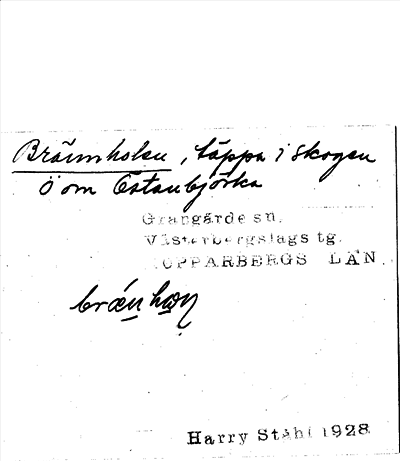 Brännholen, täppa i skogen
ö om Östanbjörka
Grangärde sn.
Västerbergslags tg.
OPPARBERGS LÄN
Harry Ståhl 1928